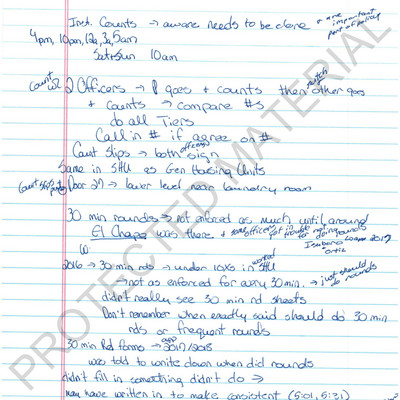 Inst. Counts → aware needs to be done * one important part of policy
4pm, 10pm, 12a, 3a, 5am
Sat+Sun 10am
Count w/ 2 Officers → 1 goes + counts then switch other goes
+ counts → compare #s
do all Tiers
Call in # if agree on #
Count Slips → both officers sign
Same in SHU as Gen Housing Units
Count slips Door 27 → lower level near laundry room
30 min rounds → not enforced as much until around
El Chapo was there + some officers got in trouble for not doing rounds
2017
2016 → 30 min rds → under 10xs worked in SHU
→ not as enforced for every 30 min. → just should do rounds
didn't really see 30 min rd sheets
Don't remember when exactly said should do 30 min
rds or frequent rounds
30 min Rd forms → 2017/2018
was told to write down when did rounds
didn't fill in something didn't do →
may have written in to make consistent (5:01, 5:31)
PROTECTED MATERIAL